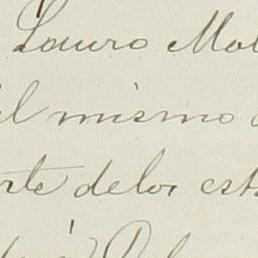 Lauro Mol
el mismo
rte delos est